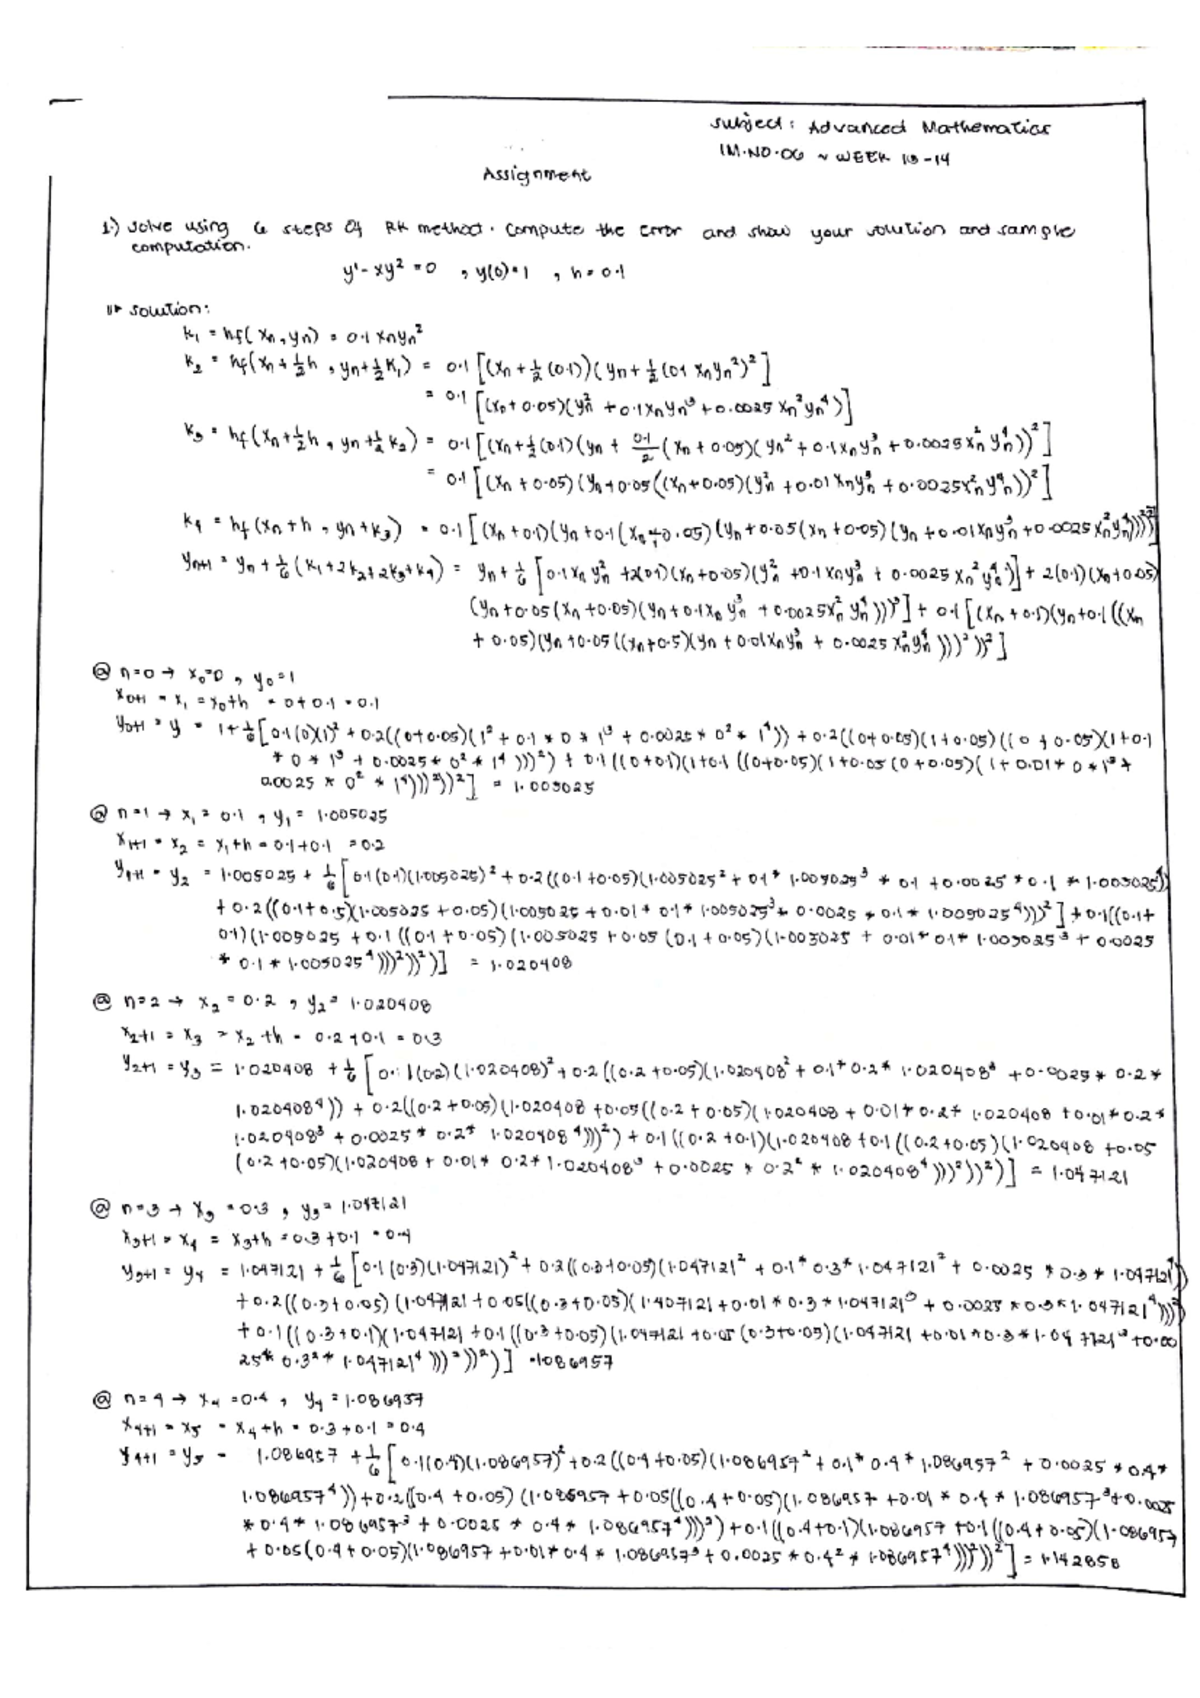 Subject: Advanced Mathematics
IM.NO.06 ~ WEEK 13-14
Assignment
1.) Solve using 6 steps of RK method. Compute the error and show your solution and sample
computation.
y' - xy² = 0 , y(0)=1 , h = 0.1
Solution:
k₁ = hf(xn, yn) = 0.1 xnyn²
k₂ = hf(xn + ½h , yn + ½k₁) = 0.1 [(xn + ½(0.1))(yn + ½(0.1 xnyn²)²]
= 0.1 [(xn + 0.05)(yn² + 0.1xnyn³ + 0.0025 xn²yn⁴)]
k₃ = hf(xn + ½h , yn + ½k₂) = 0.1 [(xn + ½(0.1)(yn + 0.1/2 (xn + 0.05)(yn² + 0.1xnyn³ + 0.0025xn²yn⁴))²]
= 0.1 [(xn + 0.05)(yn + 0.05((xn + 0.05)(yn² + 0.01xnyn³ + 0.0025xn²yn⁴))²]
k₄ = hf(xn + h , yn + k₃) = 0.1 [(xn + 0.1)(yn + 0.1(xn + 0.05)(yn + 0.05(xn + 0.05)(yn + 0.01xnyn³ + 0.0025xn²yn⁴))))²]
yn+1 = yn + 1/6 (k₁ + 2k₂ + 2k₃ + k₄) = yn + 1/6 [0.1xnyn² + 2(0.1)(xn + 0.05)(yn² + 0.1xnyn³ + 0.0025xn²yn⁴)] + 2(0.1)(xn + 0.05)
(yn + 0.05(xn + 0.05)(yn + 0.1xnyn³ + 0.0025xn²yn⁴)))²] + 0.1 [(xn + 0.1)(yn + 0.1((xn
+ 0.05)(yn + 0.05((xn + 0.5)(yn + 0.01xnyn³ + 0.0025xn²yn⁴)))²))²]
@ n=0 → x₀=0 , y₀=1
x0+1 = x₁ = x₀+h = 0+0.1 = 0.1
y0+1 = y = 1+1/6[0.1(0)(1)² + 0.2((0+0.05)(1² + 0.1*0*1³ + 0.0025*0²*1⁴)) + 0.2((0+0.05)(1+0.05)((0+0.05)(1+0.1
*0*1³ + 0.0025*0²*1⁴)))²) + 0.1((0+0.1)(1+0.1((0+0.05)(1+0.05(0+0.05)(1+0.01*0*1³+
0.0025*0²*1⁴)))²))²] = 1.005025
@ n=1 → x₁ = 0.1 , y₁ = 1.005025
x1+1 = x₂ = x₁+h = 0.1+0.1 = 0.2
y1+1 = y₂ = 1.005025 + 1/6[0.1(0.1)(1.005025)² + 0.2((0.1+0.05)(1.005025² + 0.1*1.005025³*0.1 + 0.0025*0.1*1.005025⁴))
+ 0.2((0.1+0.5)(1.005025 + 0.05)(1.005025 + 0.01*0.1*1.005025³ + 0.0025*0.1*1.005025⁴)))²] + 0.1((0.1+
0.1)(1.005025 + 0.1((0.1+0.05)(1.005025 + 0.05(0.1+0.05)(1.005025 + 0.01*0.1*1.005025³ + 0.0025
*0.1*1.005025⁴)))²))²)] = 1.020408
@ n=2 → x₂ = 0.2 , y₂ = 1.020408
x2+1 = x₃ = x₂+h = 0.2+0.1 = 0.3
y2+1 = y₃ = 1.020408 + 1/6[0.1(0.2)(1.020408)² + 0.2((0.2+0.05)(1.020408² + 0.1*0.2*1.020408³ + 0.0025*0.2*
1.020408⁴)) + 0.2((0.2+0.05)(1.020408+0.05((0.2+0.05)(1.020408 + 0.01*0.2*1.020408 + 0.01*0.2*
1.020408³ + 0.0025*0.2*1.020408⁴)))²) + 0.1((0.2+0.1)(1.020408+0.1((0.2+0.05)(1.020408+0.05
(0.2+0.05)(1.020408 + 0.01*0.2*1.020408³ + 0.0025*0.2²*1.020408⁴)))²))²)] = 1.047121
@ n=3 → x₃ = 0.3 , y₃ = 1.047121
x3+1 = x₄ = x₃+h = 0.3+0.1 = 0.4
y3+1 = y₄ = 1.047121 + 1/6[0.1(0.3)(1.047121)² + 0.2((0.3+0.05)(1.047121² + 0.1*0.3*1.047121² + 0.0025*0.3*1.047121⁴))
+0.2((0.3+0.05)(1.047121+0.05((0.3+0.05)(1.407121+0.01*0.3*1.047121³ + 0.0025*0.3*1.047121⁴)))²
+0.1((0.3+0.1)(1.047121+0.1((0.3+0.05)(1.047121+0.05(0.3+0.05)(1.047121+0.01*0.3*1.047121³+0.00
25*0.3²*1.047121⁴)))²))²)] = 1.086957
@ n=4 → x₄ = 0.4 , y₄ = 1.086957
x4+1 = x₅ = x₄+h = 0.3+0.1 = 0.4
y4+1 = y₅ = 1.086957 + 1/6[0.1(0.4)(1.086957)² + 0.2((0.4+0.05)(1.086957² + 0.1*0.4*1.086957² + 0.0025*0.4*
1.086957⁴)) + 0.2((0.4+0.05)(1.086957+0.05((0.4+0.05)(1.086957+0.01*0.4*1.086957³+0.0025
*0.4*1.086957³ + 0.0025*0.4*1.086957⁴)))²) + 0.1((0.4+0.1)(1.086957+0.1((0.4+0.05)(1.086957
+0.05(0.4+0.05)(1.086957+0.01*0.4*1.086957³ + 0.0025*0.4²*1.086957⁴)))²))²] = 1.142858